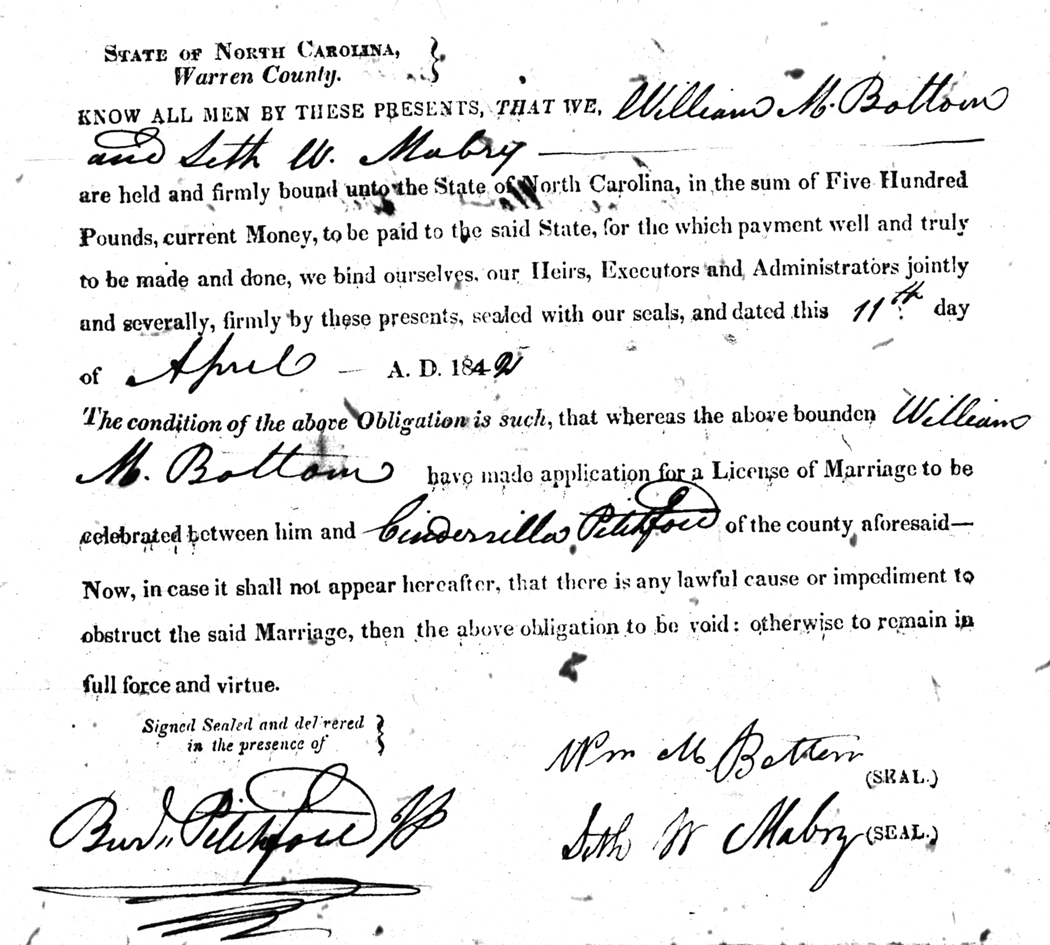 STATE OF NORTH CAROLINA,
Warren County.
KNOW ALL MEN BY THESE PRESENTS, THAT WE, William M. Bottom
and Seth W. Mabry
are held and firmly bound unto the State of North Carolina, in the sum of Five Hundred
Pounds, current Money, to be paid to the said State, for the which payment well and truly
to be made and done, we bind ourselves, our Heirs, Executors and Administrators jointly
and severally, firmly by these presents, sealed with our seals, and dated this 11th day
of April — A. D. 1842
The condition of the above Obligation is such, that whereas the above bounden William
M. Bottom have made application for a License of Marriage to be
celebrated between him and Cinderrilla Pitchford of the county aforesaid—
Now, in case it shall not appear hereafter, that there is any lawful cause or impediment to
obstruct the said Marriage, then the above obligation to be void: otherwise to remain in
full force and virtue.
Signed Sealed and delivered
in the presence of
Wm M Bottom (SEAL.)
Pitchford
Seth W Mabry (SEAL.)